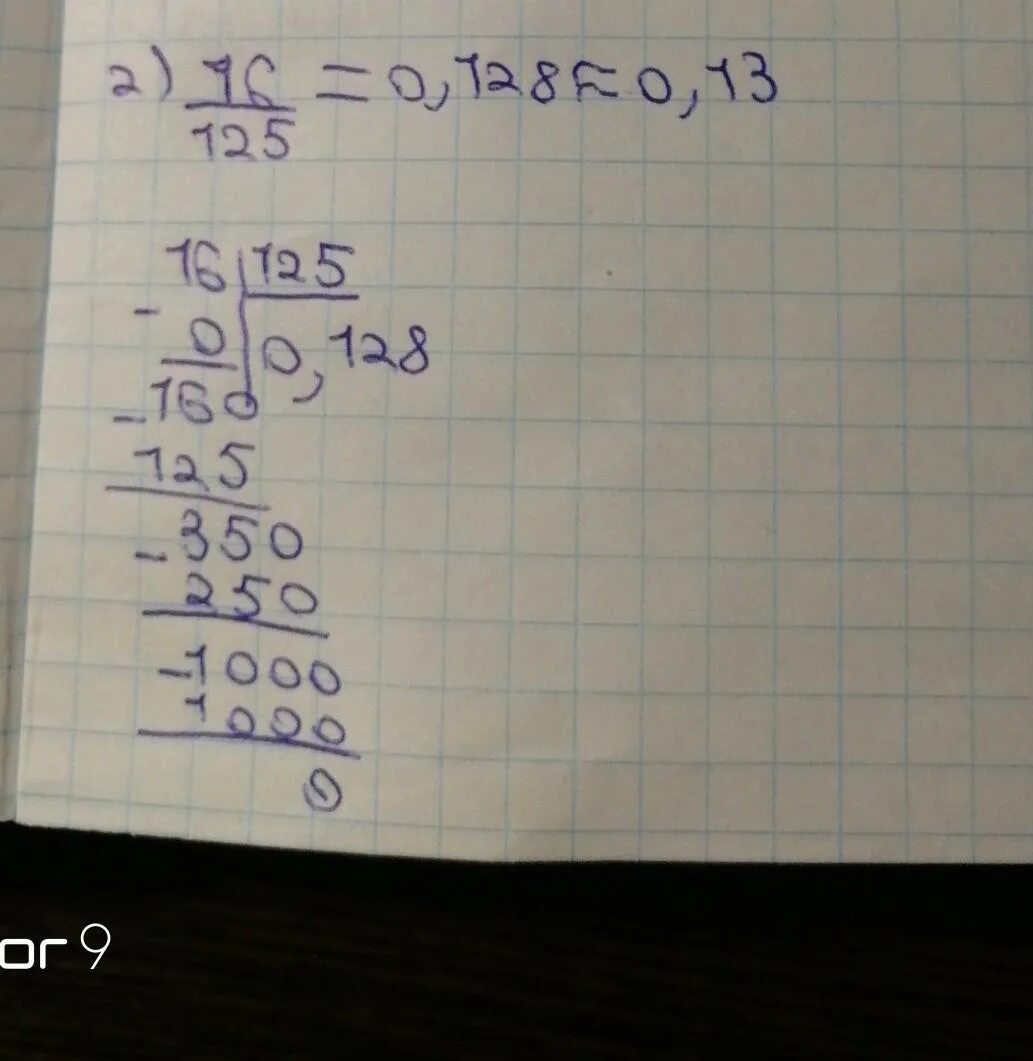 2) 16/125 = 0,128 ≈ 0,13
16 | 125
- 0 | 0,128
-160
125
-350
250
-1000
1000
0
or 9